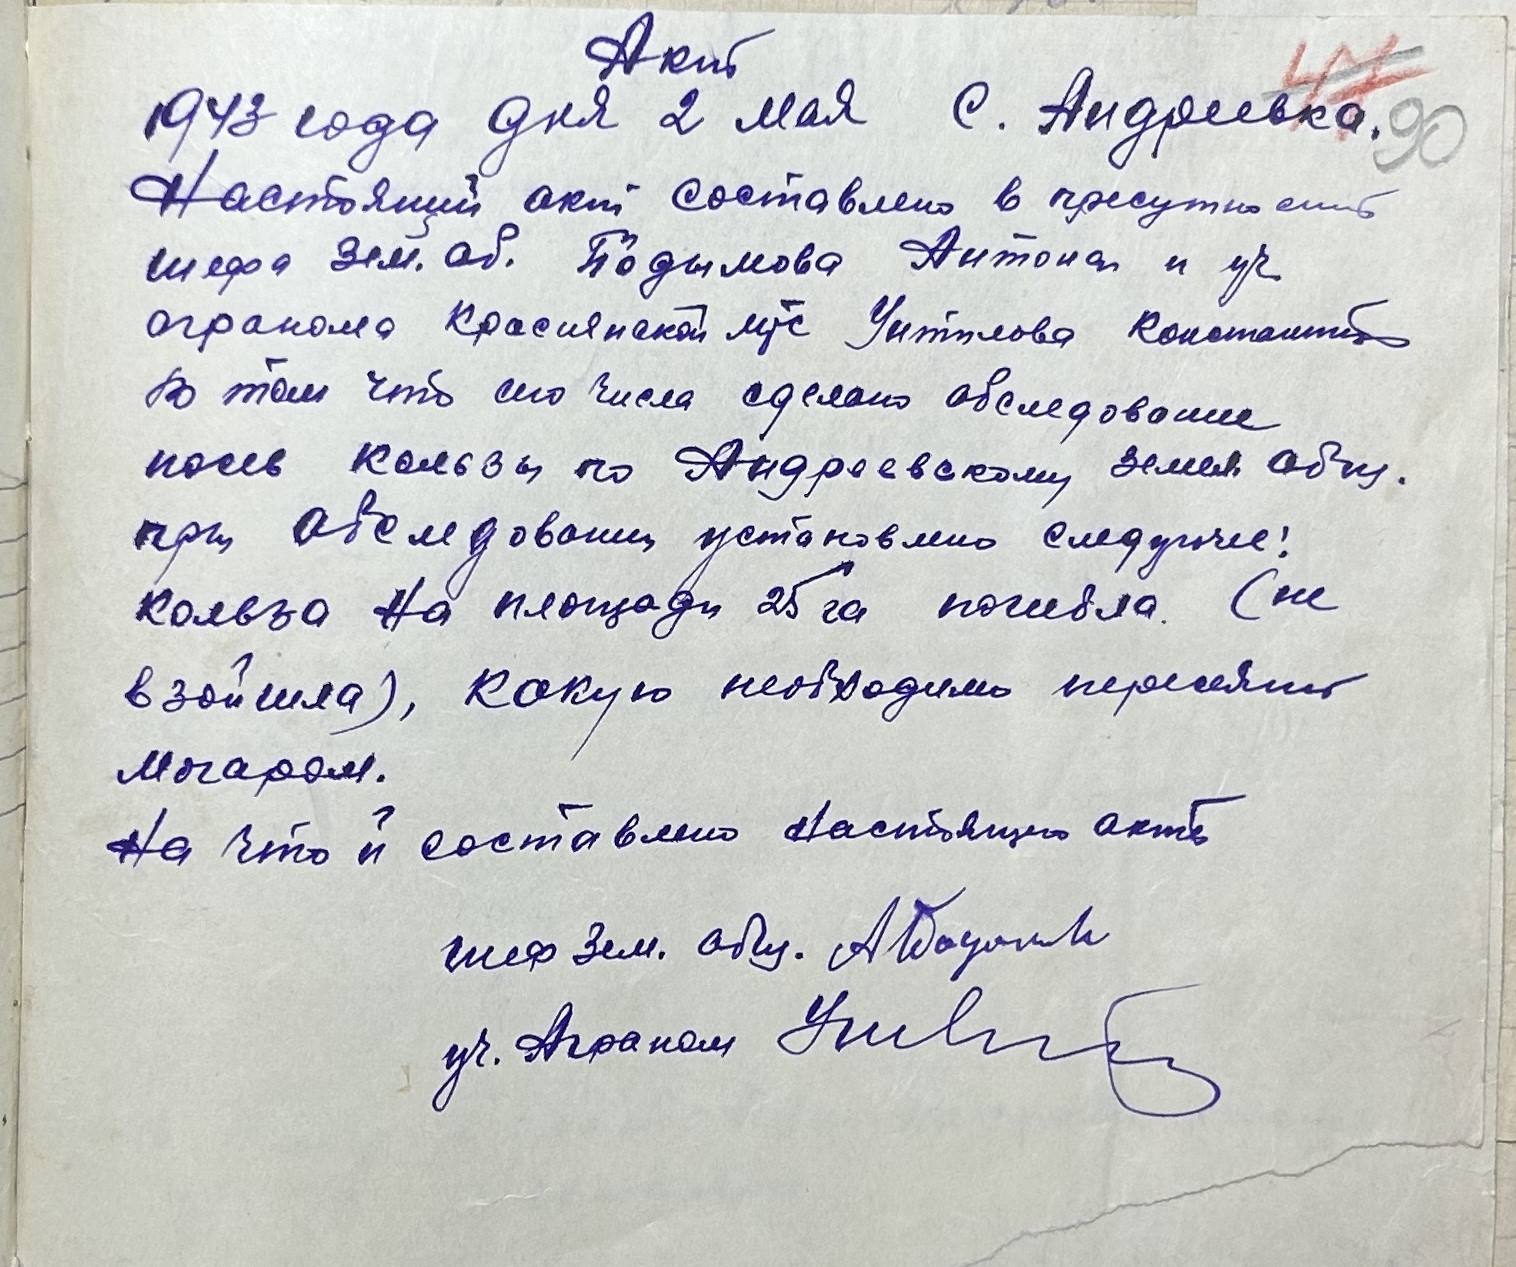 Актъ
1943 года дня 2 мая С. Андреевка. 90
Настоящий акт составлено в присутност
шефа Зем. Об. Подымова Антона и уч
огранома Краснянской мтс Константи
В том что сто числа сделано обследование
посев кользы по Андреевскому Земел общ.
при обследовании установлено следуюче!
Кольза На площади 25 га погибла. (не
взойшла), какую необходимо пересеять
могаром.
На что й составлено настоящю актъ
шеф Зем. общ.
уч. Аграном